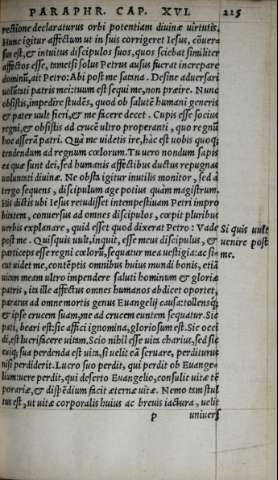 PARAPHR. CAP. XVI. 225
rectione declaraturus orbi potentiam diuinæ uirtutis.
Hunc igitur affectum ut in suis corrigeret Iesus, cōuersus
sus est, & intuitus discipulos suos, quos sciebat similiter
affectos esse, tametsi solus Petrus ausus fuerat increpare
dominū, ait Petro: Abi post me satana. Desine aduersari
uolūtati patris mei: tuum est sequi me, non præire. Nunc
obsistis, impedire studēs, quod ob salutē humani generis
& pater uult fieri, & me facere decet. Cupis esse socius
regni, & obsistis ad crucē ultro properanti, quo regnū
hoc asserā patri. Quà me uidetis ire, hàc est uobis quoq;
tendendum ad regnum cœlorum. Tu uero nondum sapis
ea quæ sunt dei, sed humanis affectibus ductus repugnas
uoluntati diuinæ. Ne obsta igitur inutilis monitor, sed à
tergo sequens, discipulum age potius quàm magistrum.
His dictis ubi Iesus retudisset intempestiuam Petri improbitatem
bitatem, conuersus ad omnes discipulos, cœpit pluribus
uerbis explanare, quid esset quod dixerat Petro: Vade
post me. Quisquis uult, inquit, esse meus discipulus, &
particeps esse regni cœlorū, sequatur mea uestigia: ac sicut
cut uidet me, contēptis omnibus huius mundi bonis, etiā
uitam meam ultro impendere saluti hominum & gloriæ
patris, ita ille affectus omnes humanos abdicet oportet,
paratus ad omne mortis genus Euangelij causa: tollensq;
& ipse crucem suam, me ad crucem euntem sequatur. Sic
pati, beari est: sic affici ignominia, gloriosum est. Sic occidi
di, est lucrifacere uitam. Scio nihil esse uita charius, sed sic
cuiq; sua perdenda est uita, si uelit eā seruare, perditurus
nisi perdiderit. Lucro suo perdit, qui perdit ob Euangelium:
lium: uere perdit, qui deserto Euangelio, consulit uitæ tēporariæ,
porariæ, & dispēdium facit æternæ uitæ. Nemo tam stultus
tus est, ut uitæ corporalis huius ac breuis iactura, uelit
p uniuers
Si quis uult
uenire post
me.